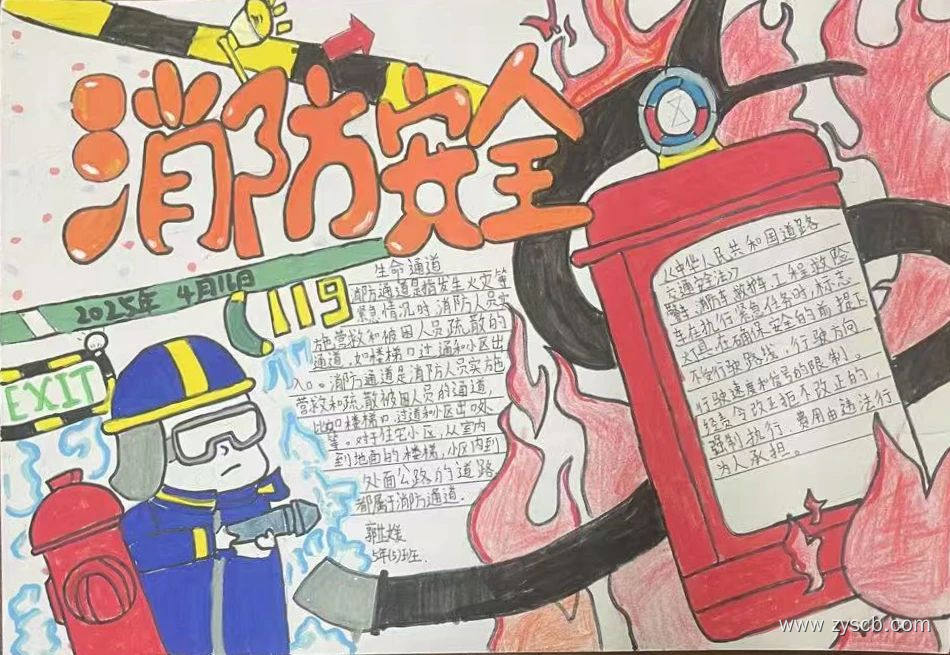 消防安全
2025年 4月16日
119
EXIT
生命通道
消防通道是指发生火灾等
紧急情况时,消防人员实
施营救和被困人员疏散的
通道,如楼梯口过通和小区出
入。。消防通道是消防人员实施
营救和疏散被困人员的通道,
比如楼梯口过道和小区出口处
等。对于住宅小区,从室内
到地面的楼梯,小区内到
处面公路的道路
都属于消防通道.
5年(5)班.
《中华人民共和国道路
交通安全法》
警车消防车救护车,工程救险
车在执行紧急任务时,标志
灯具,在确保安全的前提下
不受行驶路线,行驶方向
行驶速度和信号的限制。
令改正拒不改正的,
强制执行,费用由违法行
为人承担。
www.zyscb.com